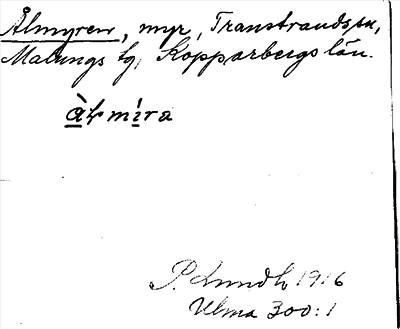 Ålmyren, myr, Transtrands sn,
Malungs tg, Kopparbergs län.
à̱ɫmi̱̇ra
P. Lundh 1916
Ulma 300:1